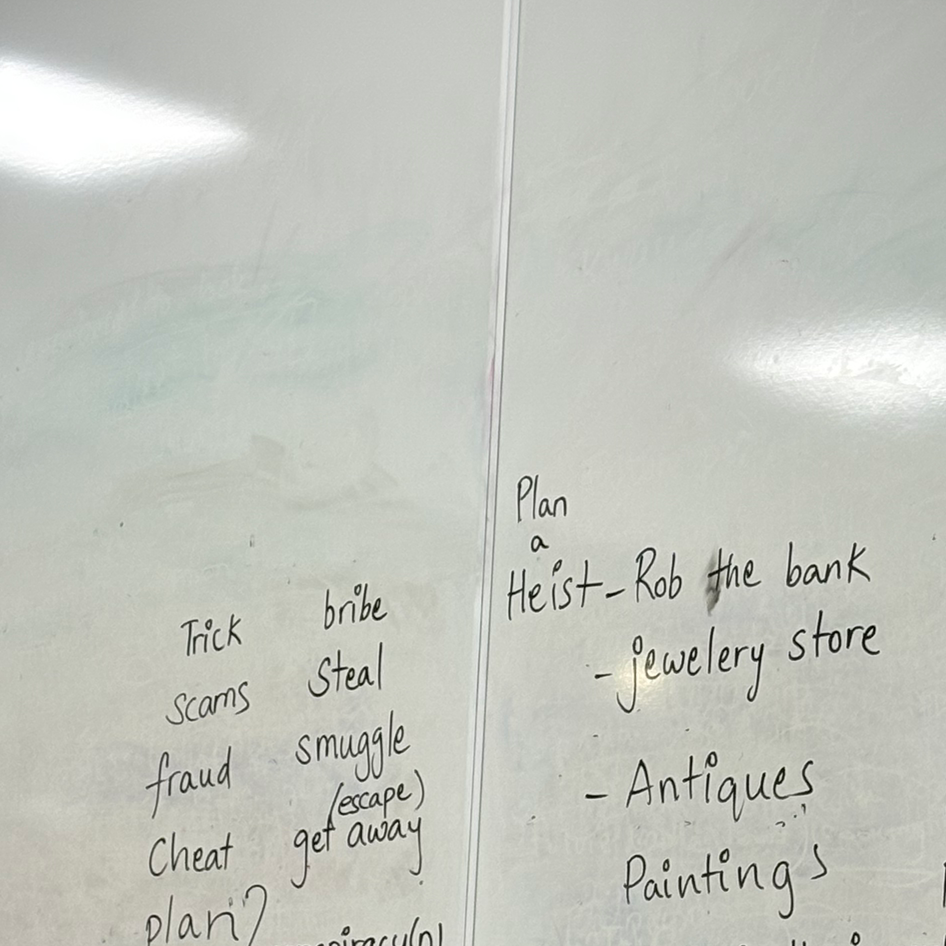 Trick
scams
fraud
Cheat
plan?
bribe
Steal
smuggle
(escape)
get away
Plan
a
Heist - Rob the bank
- jewelery store
- Antiques
Paintings